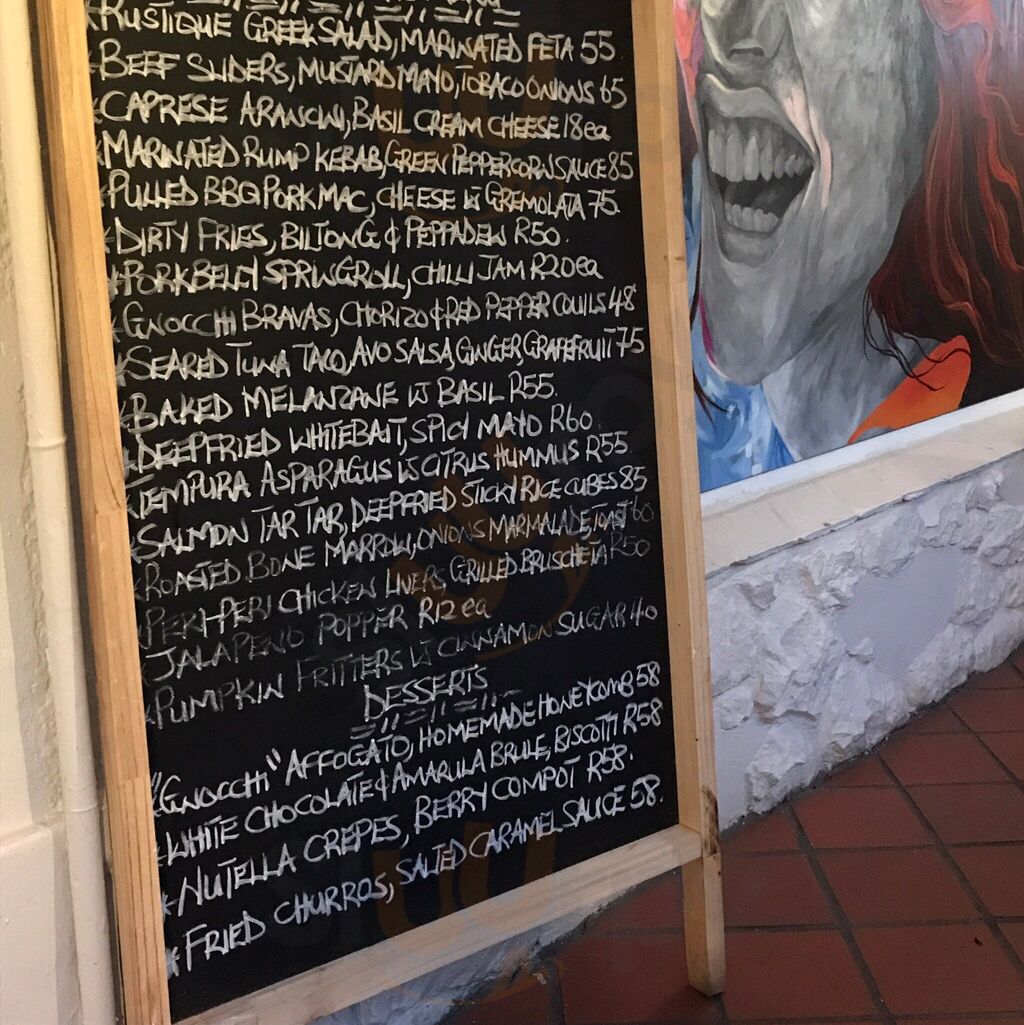 *RUSTIQUE GREEK SALAD, MARINATED FETA 55
*BEEF SLIDERS, MUSTARD MAYO, TOBACO ONIONS 65
*CAPRESE ARANCINI, BASIL CREAM CHEESE 18ea
*MARINATED RUMP KEBAB, GREEN PEPPERCORN SAUCE 85
*PULLED BBQ PORK MAC, CHEESE W GREMOLATA 75.
*DIRTY FRIES, BILTONG & PEPPADEW R50.
*PORKBELLY SPRINGROLL, CHILLI JAM R20ea
*GNOCCHI BRAVAS, CHORIZO & RED PEPPER COULLS 48
*SEARED TUNA TACO, AVO SALSA, GINGER, GRAPEFRUIT 75
*BAKED MELANZANE W BASIL R55.
*DEEPFRIED WHITEBAIT, SPICY MAYO R60.
*TEMPURA ASPARAGUS W CITRUS HUMMUS R55
*SALMON TAR TAR, DEEPFRIED STICKY RICE CUBES 85
*ROASTED BONE MARROW, ONIONS MARMALADE, TOAST 60
*PERI-PERI CHICKEN LIVERS, GRILLED BRUSCHETTA R50
*JALAPENO POPPER R12ea
*PUMPKIN FRITTERS W CINNAMON SUGAR 40
DESSERTS
"GNOCCHI" AFFOGATO, HOMEMADE HONEYCOMB 58
*WHITE CHOCOLATE & AMARULA BRULE, BISCOTTI R58
*NUTELLA CREPES, BERRY COMPOT R58.
*FRIED CHURROS, SALTED CARAMEL SAUCE 58.